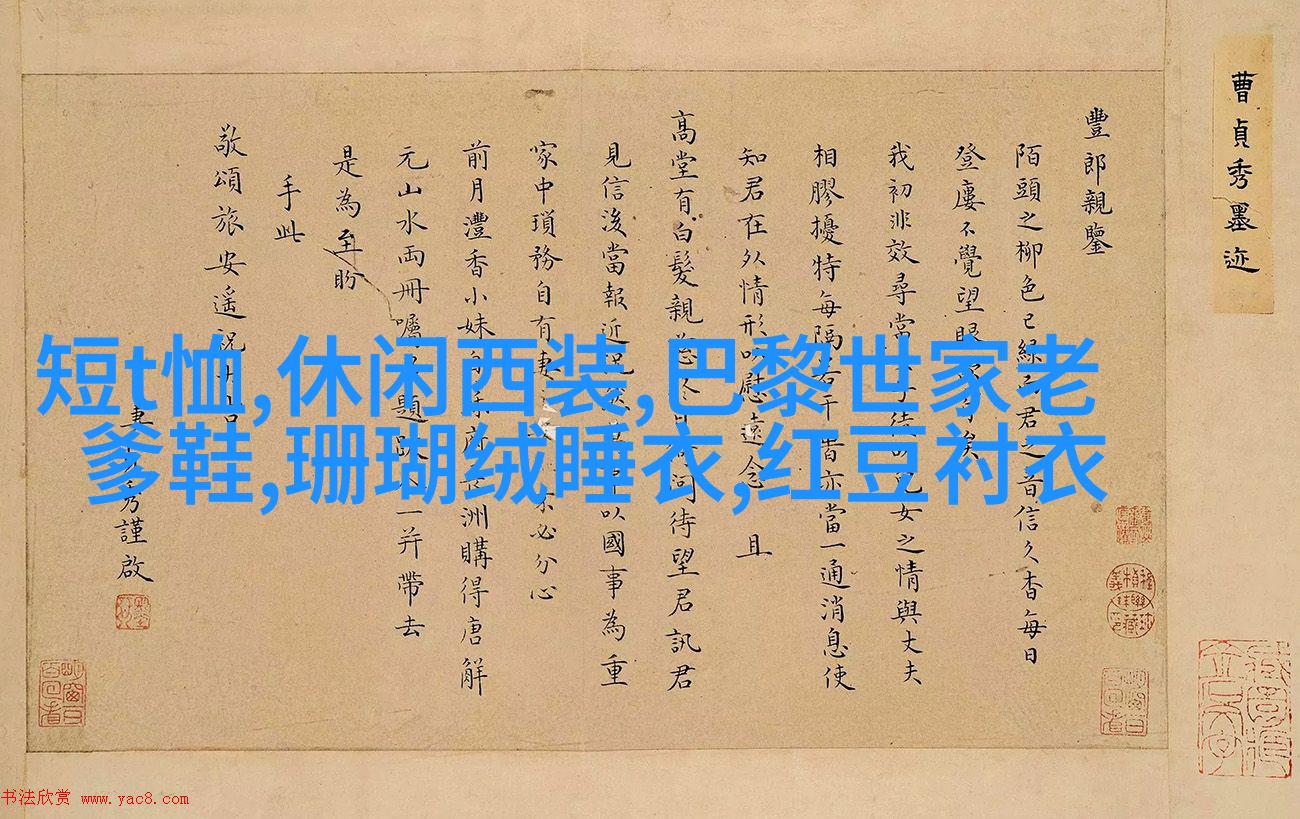 曹貞秀墨迹
豐郎親鑒
陌頭之柳色已綠而君之音信久杳每日
登廔不覺望眼
我初非效尋常
女之情與丈夫
相膠擾特每隔若干
當一通消息使
知君在外情形以慰遠念
且
高堂有白髮親
問待望君訊君
見信後當報近
以國事為重
家中瑣務自有妻
必分心
前月灃香小妹
洲購得唐解
元山水兩冊囑
題跋
一并帶去
是為至盼
手此
敬頌旅安遙祝
秀謹啟
短t恤,休闲西装,巴黎世家老
爹鞋,珊瑚绒睡衣,红豆衬衣
书法欣赏 www.yac8.com